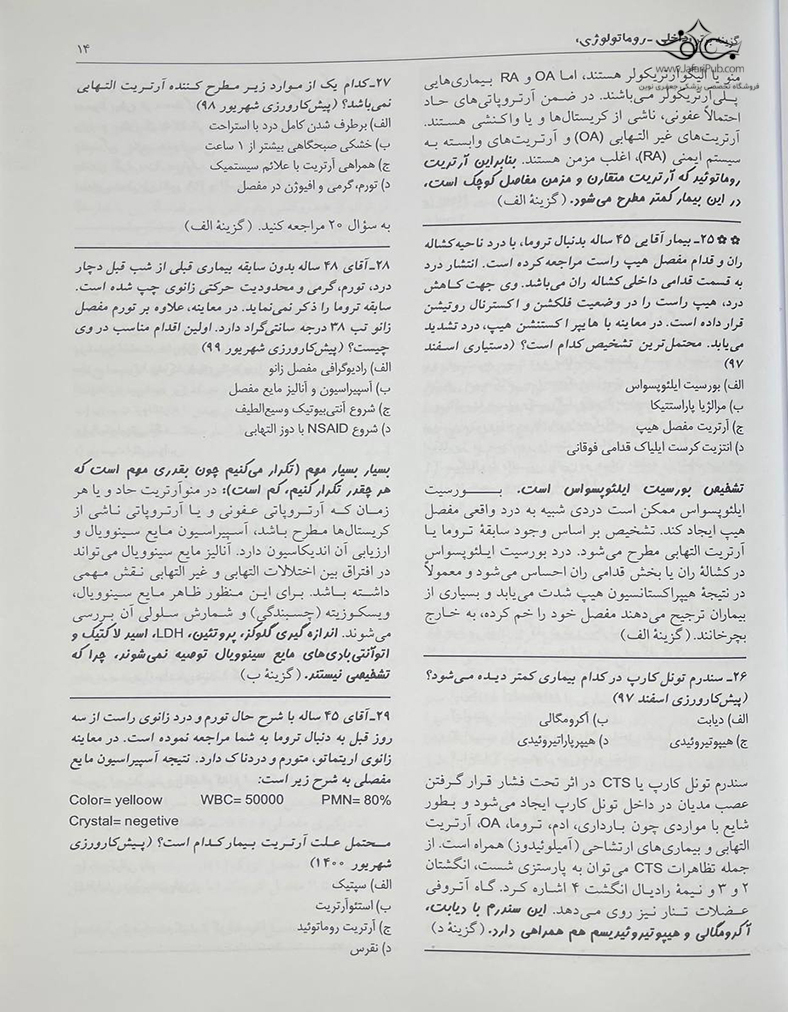 گزینه برتر داخلی - روماتولوژی،
۱۴
www.JafariPub.com
فروشگاه تخصصی پزشکی جعفری نوین
منو یا الیگوآرتریکولر هستند، اما OA و RA بیماری‌هایی
پلی‌آرتریکولر می‌باشند. در ضمن آرتروپاتی‌های حاد
احتمالاً عفونی، ناشی از کریستال‌ها و یا واکنشی هستند.
آرتریت‌های غیر التهابی (OA) و آرتریت‌های وابسته به
سیستم ایمنی (RA)، اغلب مزمن هستند. بنابراین آرتریت
روماتوئید که آرتریت متقارن و مزمن مفاصل کوچک است،
در این بیمار کمتر مطرح می‌شود. (گزینهٔ الف)
۲۵- بیمار آقایی ۴۵ ساله بدنبال تروما، با درد ناحیه کشاله
ران و قدام مفصل هیپ راست مراجعه کرده است. انتشار درد
به قسمت قدامی داخلی کشاله ران می‌باشد. وی جهت کاهش
درد، هیپ راست را در وضعیت فلکشن و اکسترنال روتیشن
قرار داده است. در معاینه با هایپر اکستنشن هیپ، درد تشدید
می‌یابد. محتمل‌ترین تشخیص کدام است؟ (دستیاری اسفند
۹۷)
الف) بورسیت ایلئوپسواس
ب) مرالژیا پاراستتیکا
ج) آرتریت مفصل هیپ
د) انتزیت کرست ایلیاک قدامی فوقانی
تشخیص بورسیت ایلئوپسواس است. بورسیت
ایلئوپسواس ممکن است دردی شبیه به درد واقعی مفصل
هیپ ایجاد کند. تشخیص بر اساس وجود سابقهٔ تروما یا
آرتریت التهابی مطرح می‌شود. درد بورسیت ایلئوپسواس
در کشالهٔ ران یا بخش قدامی ران احساس می‌شود و معمولاً
در نتیجهٔ هیپراکستانسیون هیپ شدت می‌یابد و بسیاری از
بیماران ترجیح می‌دهند مفصل خود را خم کرده، به خارج
بچرخانند. (گزینهٔ الف)
۲۶- سندرم تونل کارپ در کدام بیماری کمتر دیده می‌شود؟
(پیش‌کارورزی اسفند ۹۷)
الف) دیابت ب) آکرومگالی
ج) هیپوتیروئیدی د) هیپرپاراتیروئیدی
سندرم تونل کارپ یا CTS در اثر تحت فشار قرار گرفتن
عصب مدیان در داخل تونل کارپ ایجاد می‌شود و بطور
شایع با مواردی چون بارداری، ادم، تروما، OA، آرتریت
التهابی و بیماری‌های ارتشاحی (آمیلوئیدوز) همراه است. از
جمله تظاهرات CTS می‌توان به پارستزی شست، انگشتان
۲ و ۳ و نیمهٔ رادیال انگشت ۴ اشاره کرد. گاه آتروفی
عضلات تنار نیز روی می‌دهد. این سندرم با دیابت،
آکرومگالی و هیپوتیروئیدیسم هم همراهی دارد. (گزینهٔ د)
۲۷- کدام یک از موارد زیر مطرح کننده آرتریت التهابی
نمی‌باشد؟ (پیش‌کارورزی شهریور ۹۸)
الف) برطرف شدن کامل درد با استراحت
ب) خشکی صبحگاهی بیشتر از ۱ ساعت
ج) همراهی آرتریت با علائم سیستمیک
د) تورم، گرمی و افیوژن در مفصل
به سؤال ۲۰ مراجعه کنید. (گزینهٔ الف)
۲۸- آقای ۴۸ ساله بدون سابقه بیماری قبلی از شب قبل دچار
درد، تورم، گرمی و محدودیت حرکتی زانوی چپ شده است.
سابقه تروما را ذکر نمی‌نماید. در معاینه، علاوه بر تورم مفصل
زانو تب ۳۸ درجه سانتی‌گراد دارد. اولین اقدام مناسب در وی
چیست؟ (پیش‌کارورزی شهریور ۹۹)
الف) رادیوگرافی مفصل زانو
ب) آسپیراسیون و آنالیز مایع مفصل
ج) شروع آنتی‌بیوتیک وسیع‌الطیف
د) شروع NSAID با دوز التهابی
بسیار بسیار مهم (تکرار می‌کنیم چون بقدری مهم است که
هر چقدر تکرار کنیم، کم است): در منوآرتریت حاد و یا هر
زمان که آرتروپاتی عفونی و یا آرتروپاتی ناشی از
کریستال‌ها مطرح باشد، آسپیراسیون مایع سینوویال و
ارزیابی آن اندیکاسیون دارد. آنالیز مایع سینوویال می‌تواند
در افتراق بین اختلالات التهابی و غیر التهابی نقش مهمی
داشته باشد. برای این منظور ظاهر مایع سینوویال،
ویسکوزیته (چسبندگی) و شمارش سلولی آن بررسی
می‌شوند. اندازه گیری گلوکز، پروتئین، LDH، اسید لاکتیک و
اتوآنتی‌بادی‌های مایع سینوویال توصیه نمی‌شوند، چرا که
تشخیصی نیستند. (گزینهٔ ب)
۲۹- آقای ۴۵ ساله با شرح حال تورم و درد زانوی راست از سه
روز قبل به دنبال تروما به شما مراجعه نموده است. در معاینه
زانوی اریتماتو، متورم و دردناک دارد. نتیجه آسپیراسیون مایع
مفصلی به شرح زیر است:
Color= yelloow WBC= 50000 PMN= 80%
Crystal= negetive
محتمل علت آرتریت بیمار کدام است؟ (پیش‌کارورزی
شهریور ۱۴۰۰)
الف) سپتیک
ب) استئوآرتریت
ج) آرتریت روماتوئید
د) نقرس